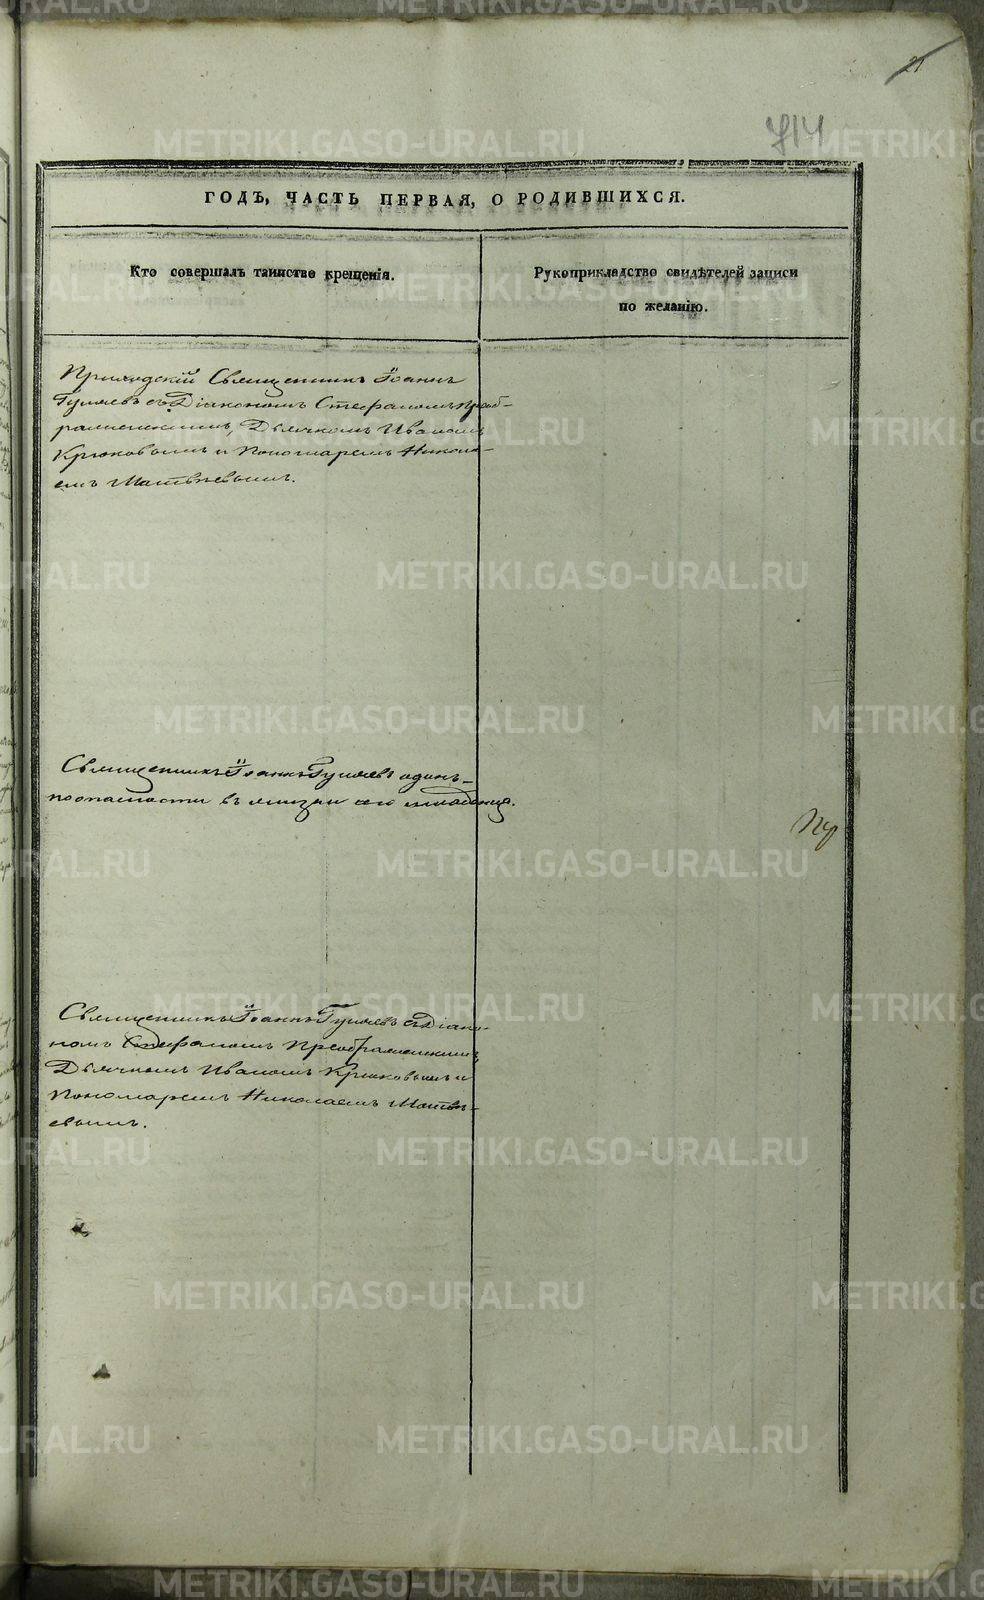 21
714
ГОДЪ, ЧАСТЬ ПЕРВАЯ, О РОДИВШИХСЯ.
Кто совершалъ таинство крещенія.
Рукоприкладство свидѣтелей записи
по желанію.
Приходскій Священникъ Іоаннъ
Гуляевъ съ Діакономъ Стефаномъ Преоб-
раженскимъ, Дьячкомъ Иваномъ
Крюковымъ и Пономаремъ Никола-
емъ Матвѣевымъ.
Священникъ Іоаннъ Гуляевъ одинъ
по опасности въ жизни сего младенца.
Священникъ Іоаннъ Гуляевъ съ Діако-
номъ Стефаномъ Преображенскимъ,
Дьячкомъ Иваномъ Крюковымъ и
Пономаремъ Николаемъ Матвѣ-
евымъ.
METRIKI.GASO-URAL.RU